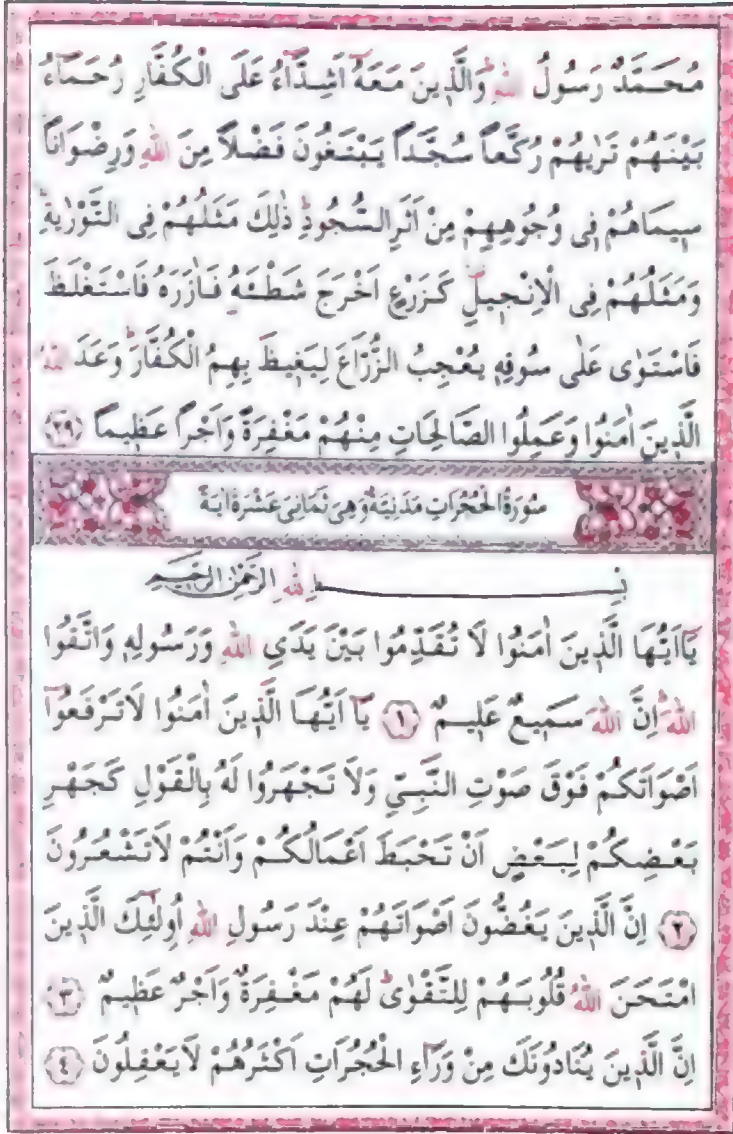 مُحَمَّدٌ رَسُولُ اللّٰهِؕ وَالَّذ۪ينَ مَعَهُٓ اَشِدَّٓاءُ عَلَى الْكُفَّارِ رُحَمَٓاءُ
بَيْنَهُمْ تَرٰيهُمْ رُكَّعاً سُجَّداً يَبْتَغُونَ فَضْلاً مِنَ اللّٰهِ وَرِضْوَاناًؗ
س۪يمَاهُمْ ف۪ي وُجُوهِهِمْ مِنْ اَثَرِ السُّجُودِؕ ذٰلِكَ مَثَلُهُمْ فِي التَّوْرٰيةِۚ
وَمَثَلُهُمْ فِي الْاِنْج۪يلِ۠ كَزَرْعٍ اَخْرَجَ شَطْـَٔهُ فَاٰزَرَهُ فَاسْتَغْلَظَ
فَاسْتَوٰى عَلٰى سُوقِه۪ يُعْجِبُ الزُّرَّاعَ لِيَغ۪يظَ بِهِمُ الْكُفَّارَؕ وَعَدَ اللّٰهُ
الَّذ۪ينَ اٰمَنُوا وَعَمِلُوا الصَّالِحَاتِ مِنْهُمْ مَغْفِرَةً وَاَجْراً عَظ۪يماً ﴿٢٩﴾
سُورَةُ الْحُجُرَاتِ مَدَنِيَّةٌ وَهِيَ ثَمَانِيَ عَشْرَةَ اٰيَةً
بِسْمِ اللّٰهِ الرَّحْمٰنِ الرَّح۪يمِ
يَٓا اَيُّهَا الَّذ۪ينَ اٰمَنُوا لَا تُقَدِّمُوا بَيْنَ يَدَيِ اللّٰهِ وَرَسُولِه۪ وَاتَّقُوا
اللّٰهَؕ اِنَّ اللّٰهَ سَم۪يعٌ عَل۪يمٌ ﴿١﴾ يَٓا اَيُّهَا الَّذ۪ينَ اٰمَنُوا لَا تَرْفَعُٓوا
اَصْوَاتَكُمْ فَوْقَ صَوْتِ النَّبِيِّ وَلَا تَجْهَرُوا لَهُ بِالْقَوْلِ كَجَهْرِ
بَعْضِكُمْ لِبَعْضٍ اَنْ تَحْبَطَ اَعْمَالُكُمْ وَاَنْتُمْ لَا تَشْعُرُونَ
﴿٢﴾ اِنَّ الَّذ۪ينَ يَغُضُّونَ اَصْوَاتَهُمْ عِنْدَ رَسُولِ اللّٰهِ اُو۬لٰٓئِكَ الَّذ۪ينَ
امْتَحَنَ اللّٰهُ قُلُوبَهُمْ لِلتَّقْوٰىؕ لَهُمْ مَغْفِرَةٌ وَاَجْرٌ عَظ۪يمٌ ﴿٣﴾
اِنَّ الَّذ۪ينَ يُنَادُونَكَ مِنْ وَرَٓاءِ الْحُجُرَاتِ اَكْثَرُهُمْ لَا يَعْقِلُونَ ﴿٤﴾